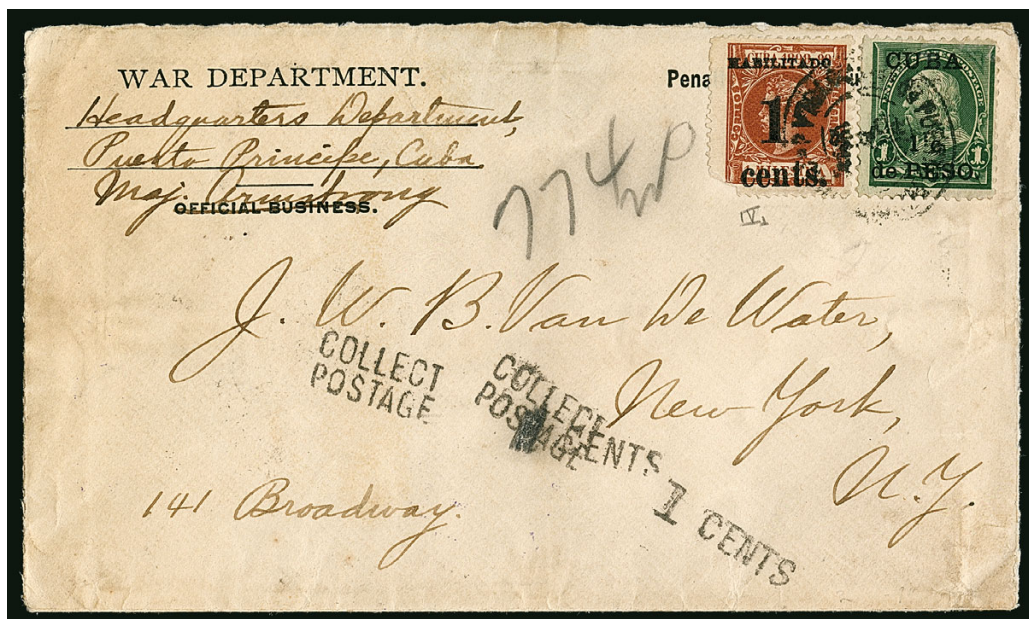 WAR DEPARTMENT.
Pena
Headquarters Department,
Puerto Principe, Cuba
Maj. Armstrong
OFFICIAL BUSINESS.
HABILITADO
1
cents.
CUBA
1 1
de PESO.
774
IV.
J. W. B. Van De Water,
New York,
N.Y.
141 Broadway.
COLLECT
POSTAGE
COLLECT
POSTAGE
CENTS
1 CENTS